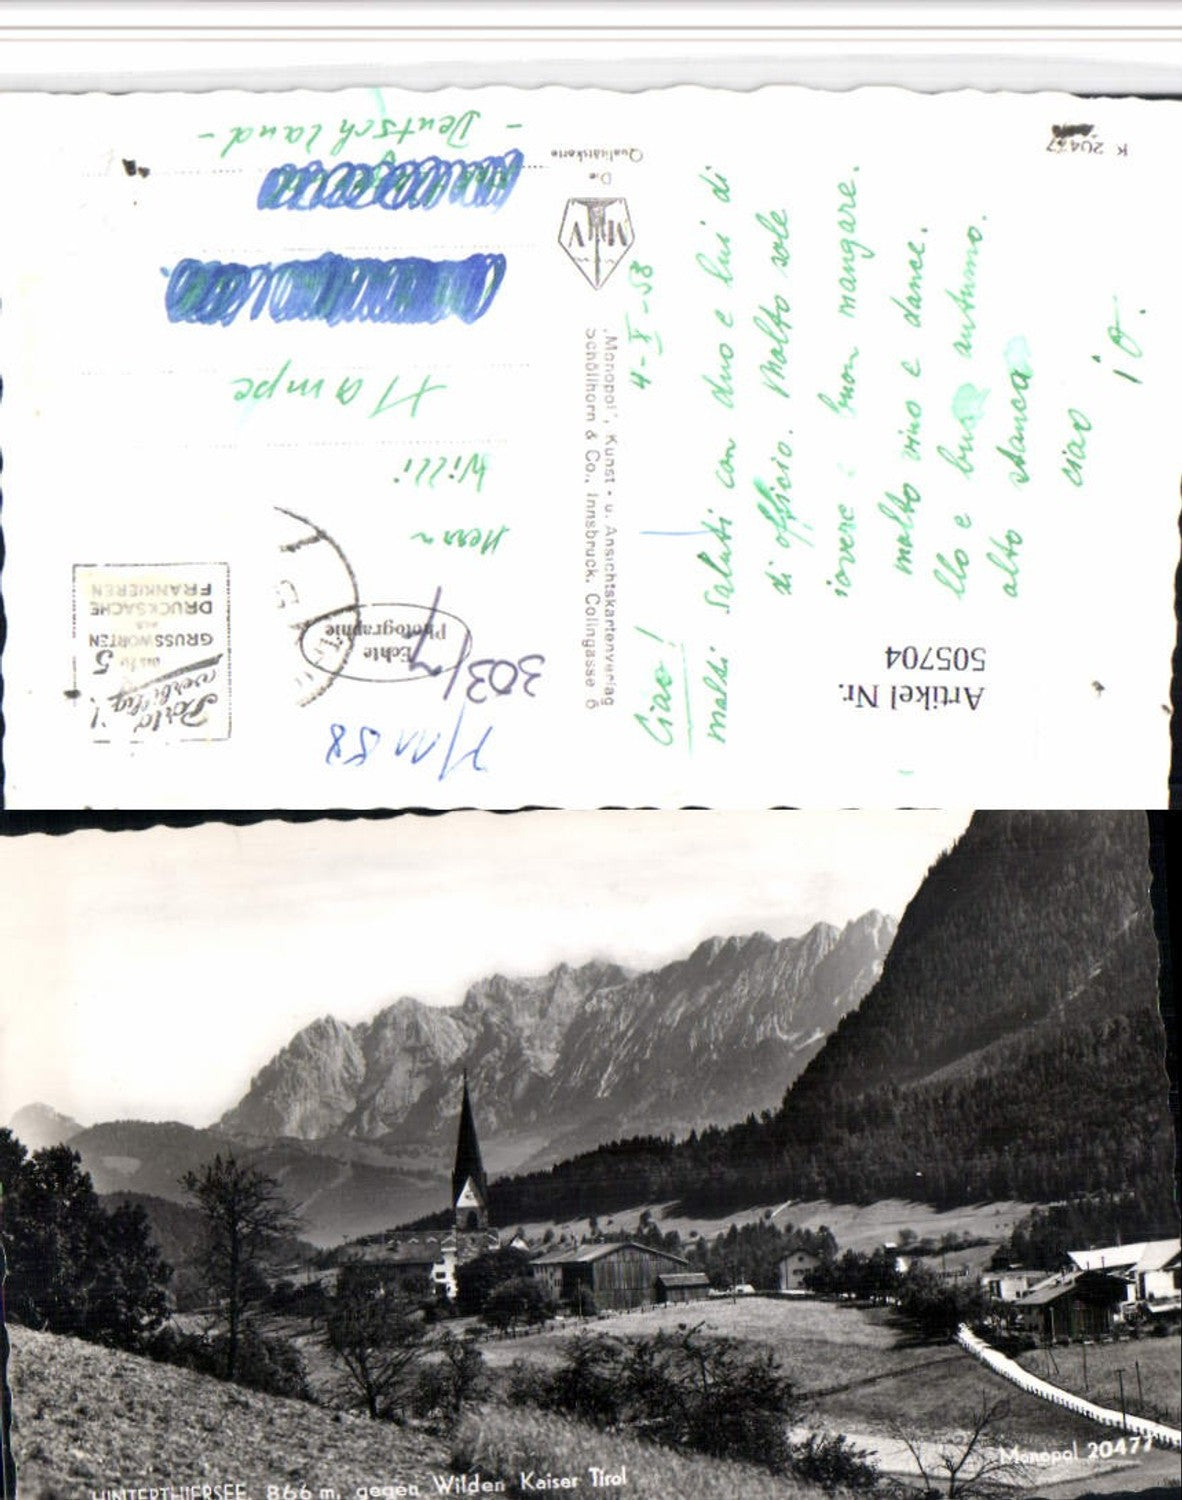 K 20477
Die
Qualitätskarte
„Monopol", Kunst- u. Ansichtskartenverlag
Schöllhorn & Co., Innsbruck, Colingasse 6
Artikel Nr.
505704
4-X-58
Ciao!
Saluti con duo e lui di
di officio. Molto sole
buon mangare.
molto vino e dance.
llo e autumo.
alto stanca
ciao
io.
Echte
Photographie
303/7
7/11 58
Porto
5
GRUSSWORTEN
ALS
DRUCKSACHE
FRANKIEREN
Herrn
Willi
Hampe
- Deutschland -
HINTERTHIERSEE, 866 m, gegen Wilden Kaiser Tirol
Monopol 20477